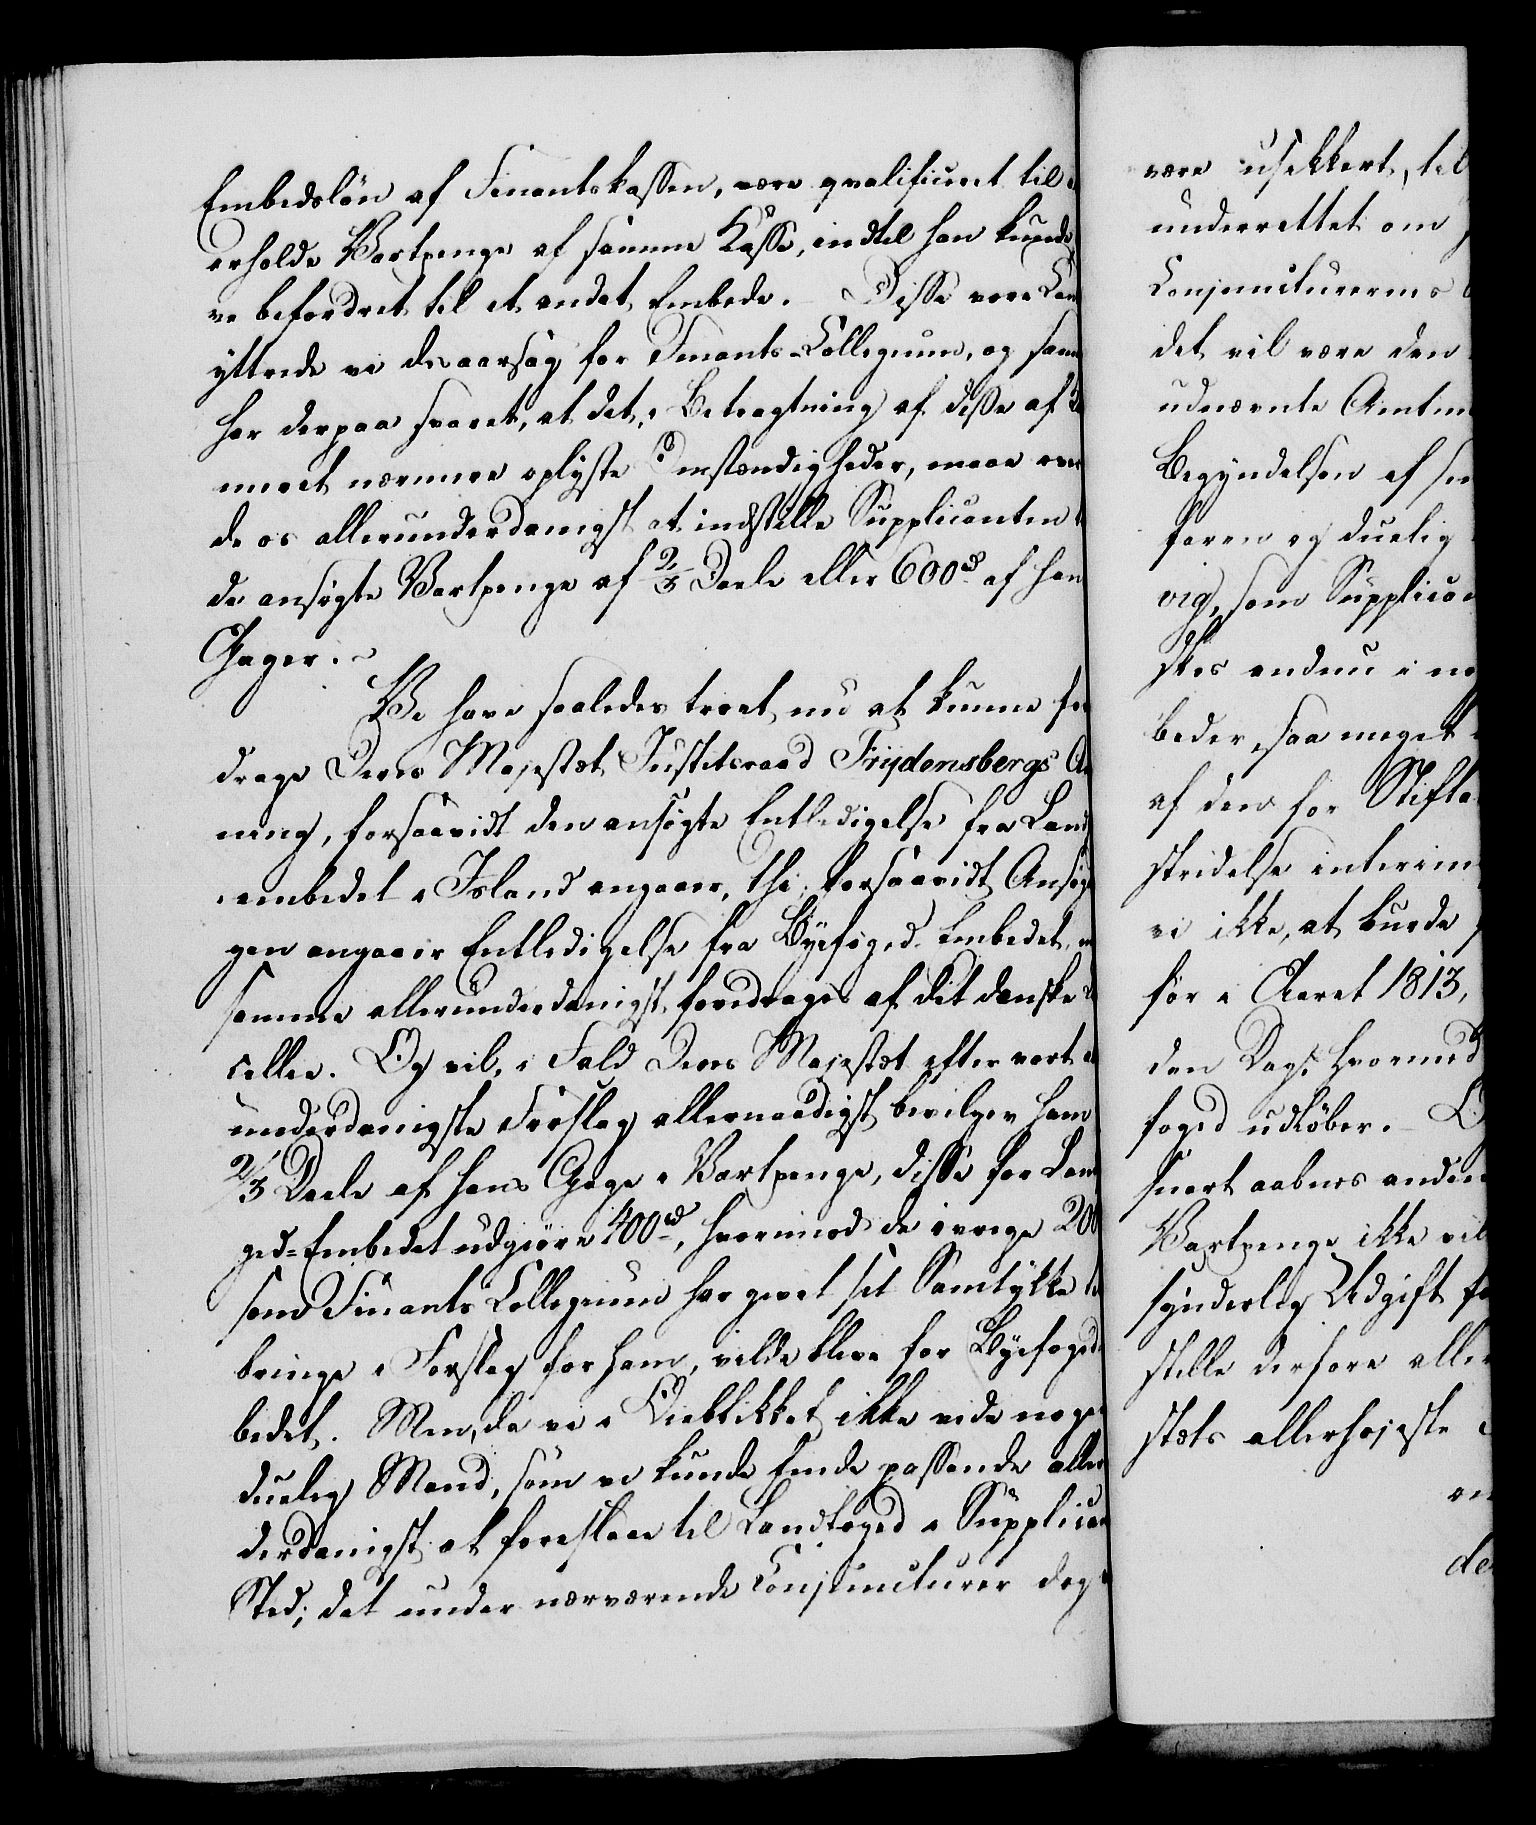 Embedslön af Finantskassen, være qvalificeret til
erholde Vartpenge af samme Kasse, indtil han kunde
ve befordret til et andet Embede. Disse vore Tan
yttrede vi desaarsag for Finants-Collegium, og sam
har derpaa svaret, at det, i Betragtning af disse af
meret nærmere oplyste Omstændigheder, maae over
de os allerunderdanigst at indstille Supplicanten
de ansögte Vartpenge af 2/3 Deele eller 600 rd af han
Gager.
Vi have saaledes troet nu at kunne fore
drage Deres Majestæt Justitsraad Frydensbergs An
ning, forsaavidt den ansögte Entledigelse fra Land
embedet i Island angaaer, thi forsaavidt Ansög
gen angaaer Entledigelse fra Byefoged-Embedet,
samme allerunderdanigst foredrages af dit danske
cellie. Og vil, i Fald Deres Majestæt efter vort
underdanigste Forslag allernaadigst bevilger ham
2/3 Deele af hans Gage i Vartpenge, disse for Land
ged-Embedet udgiöre 400 rd, hvorimod de övrige 200
som Finants Collegium har givet sit Samtykke
bringe i Forslag for ham, vilde blive for Byefoged
bedet. Men, da vi i Öieblikket ikke vide nogen
duelig Mand, som vi kunde finde passende aller
derdanigst at foreslaae til Landfoged i Supplican
Sted; det under nærværende Conjuncturer dog
være usikkert, til
underrettet om
Conjuncturernes
det vil være den
udnævnte Amtm
Begyndelsen af
faren og duelig
vig, som Supplican
skes endnu i no
beder, saa meget
af den for Stifta
stridelse interim
vi ikke, at burde
för i Aaret 1813,
den Dag, hvormed
foged udlöber.
snart aabnes anden
Vartpenge ikke vil
synderlig Udgift for
stille derfore aller
stæts allerhöjeste
de